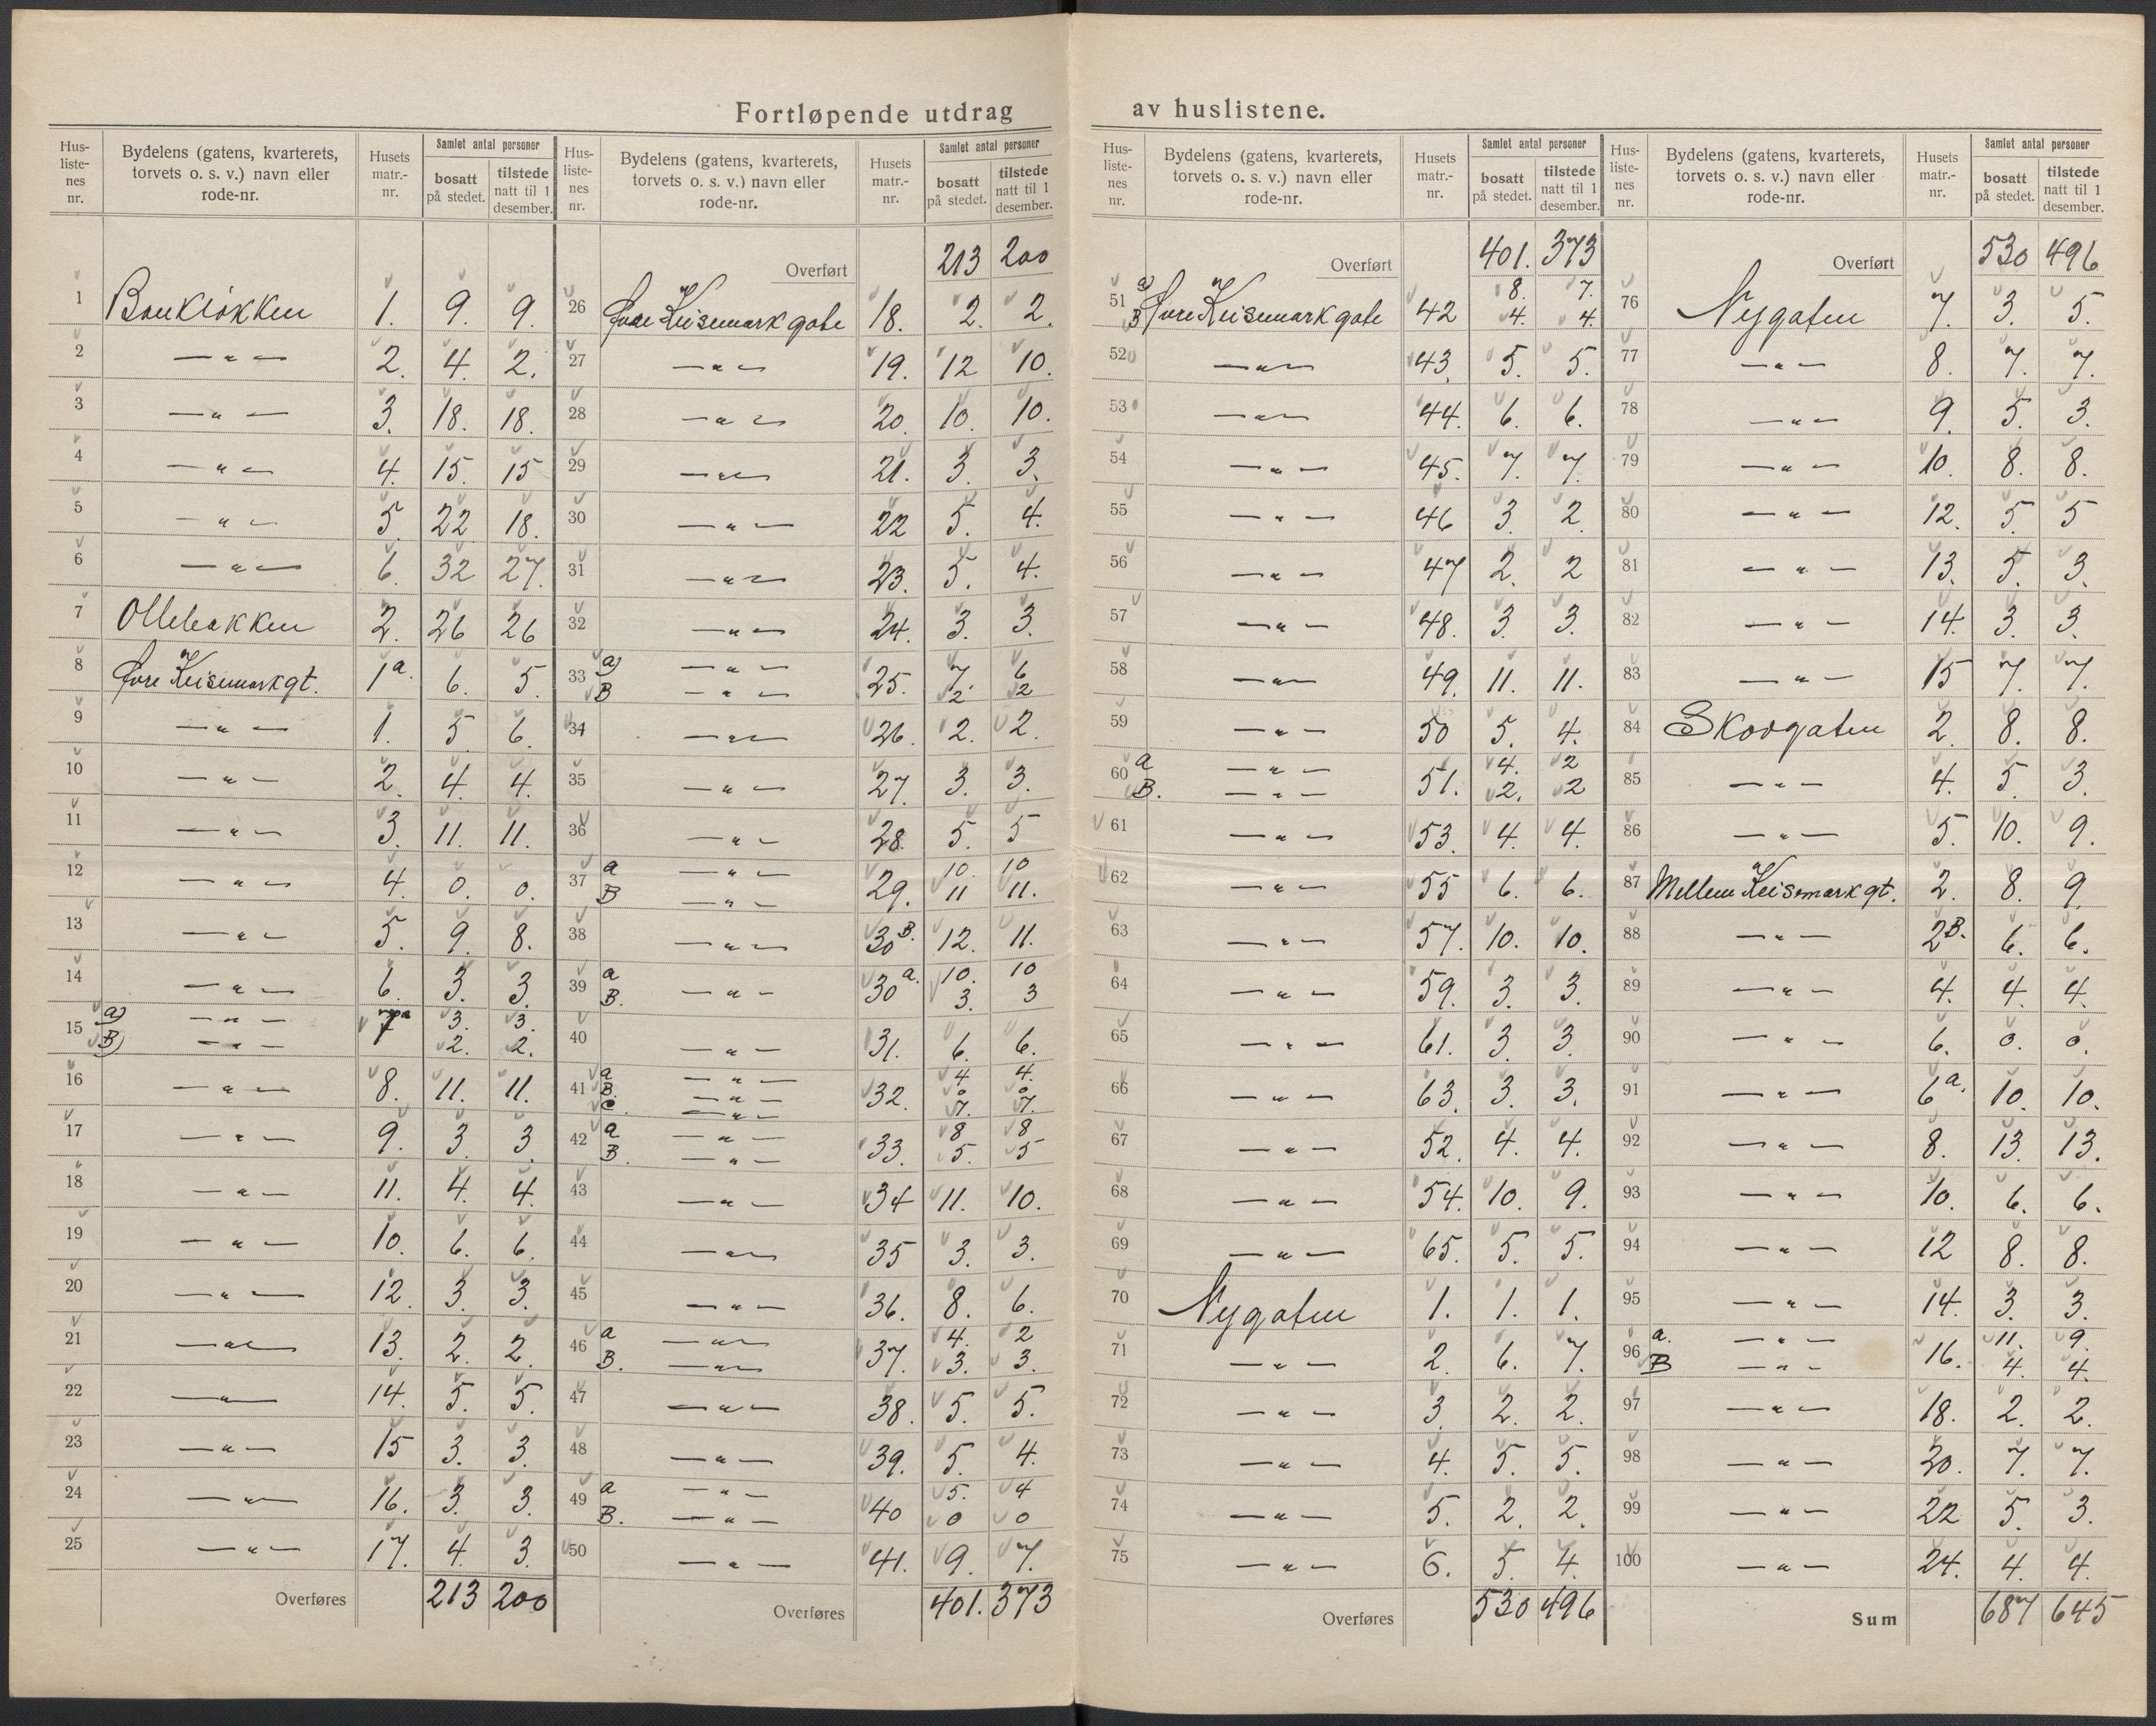 Fortløpende utdrag av huslistene.
Hus-listenes nr. | Bydelens (gatens, kvarterets, torvets o. s. v.) navn eller rode-nr. | Husets matr.-nr. | Samlet antal personer | bosatt på stedet. | tilstede natt til 1 desember.
1 Bankløkken 1. 9. 9.
2 — " — 2. 4. 2.
3 — " — 3. 18. 18.
4 — " — 4. 15. 15
5 — " — 5 22 18.
6 — " — 6. 32 27.
7 Ollebakken 2. 26 26
8 Øvre Keisemarkgt. 1a. 6. 5.
9 — " — 1. 5 6.
10 — " — 2. 4. 4.
11 — " — 3. 11. 11.
12 — " — 4. 0. 0.
13 — " — 5. 9. 8.
14 — " — 6. 3. 3.
15 a) — " — 7 3. 3.
B) — " — 2. 2.
16 — " — 8. 11. 11.
17 — " — 9. 3. 3.
18 — " — 11. 4. 4.
19 — " — 10. 6. 6.
20 — " — 12. 3. 3.
21 — " — 13. 2. 2.
22 — " — 14. 5. 5.
23 — " — 15 3. 3.
24 — " — 16. 3. 3.
25 — " — 17. 4. 3.
Overføres 213 200
Hus-listenes nr. | Bydelens (gatens, kvarterets, torvets o. s. v.) navn eller rode-nr. | Husets matr.-nr. | Samlet antal personer | bosatt på stedet. | tilstede natt til 1 desember.
Overført 213 200
26 Øvre Keisemarkgate 18. 2. 2.
27 — " — 19. 12 10.
28 — " — 20. 10. 10.
29 — " — 21. 3. 3.
30 — " — 22 5. 4.
31 — " — 23. 5. 4.
32 — " — 24. 3. 3.
33 a) — " — 25. 7. 6
B — " — 2. 2
34 — " — 26. 2. 2.
35 — " — 27 3. 3.
36 — " — 28. 5. 5
37 a — " — 29. 10. 10
B — " — 11 11.
38 — " — 30B. 12. 11.
39 a — " — 30a. 10. 10
B. 3. 3
40 — " — 31. 6. 6.
41 a — " — 32. 4 4.
B. — " — 0 0
C. — " — 7. 7.
42 a — " — 33. 8 8
B. — " — 5. 5
43 — " — 34 11. 10.
44 — " — 35 3. 3.
45 — " — 36. 8. 6.
46 a — " — 37. 4. 2
B. — " — 3. 3.
47 — " — 38. 5. 5.
48 — " — 39. 5. 4.
49 a — " — 40 5. 4
B. — " — 0 0
50 — " — 41. 9. 7.
Overføres 401. 373
Hus-listenes nr. | Bydelens (gatens, kvarterets, torvets o. s. v.) navn eller rode-nr. | Husets matr.-nr. | Samlet antal personer | bosatt på stedet. | tilstede natt til 1 desember.
Overført 401. 373
51 a) Øvre Keisemarkgate 42 8. 7.
B 4. 4.
52 — " — 43. 5. 5.
53 — " — 44. 6. 6.
54 — " — 45. 7. 7.
55 — " — 46 3 2
56 — " — 47 2. 2
57 — " — 48. 3. 3.
58 — " — 49. 11. 11.
59 — " — 50 5. 4.
60 a — " — 51. 4. 2
B. — " — 2. 2
61 — " — 53. 4. 4.
62 — " — 55 6. 6.
63 — " — 57. 10. 10.
64 — " — 59. 3. 3.
65 — " — 61. 3. 3.
66 — " — 63. 3. 3.
67 — " — 52. 4. 4.
68 — " — 54. 10. 9.
69 — " — 65. 5. 5.
70 Nygaten 1. 1. 1.
71 — " — 2. 6. 7.
72 — " — 3. 2. 2.
73 — " — 4. 5. 5.
74 — " — 5. 2. 2.
75 — " — 6. 5. 4.
Overføres 530 496
Hus-listenes nr. | Bydelens (gatens, kvarterets, torvets o. s. v.) navn eller rode-nr. | Husets matr.-nr. | Samlet antal personer | bosatt på stedet. | tilstede natt til 1 desember.
Overført 530 496
76 Nygaten 7. 3. 5.
77 — " — 8. 7. 7.
78 — " — 9. 5. 3.
79 — " — 10. 8. 8.
80 — " — 12. 5 5
81 — " — 13. 5. 3.
82 — " — 14. 3. 3.
83 — " — 15 7. 7.
84 Skovgaten 2. 8. 8.
85 — " — 4. 5. 3.
86 — " — 5. 10. 9.
87 Mellem Keisemarkgt. 2. 8. 9.
88 — " — 2B. 6. 6.
89 — " — 4. 4. 4.
90 — " — 6. 0. 0.
91 — " — 6a. 10. 10.
92 — " — 8. 13. 13.
93 — " — 10. 6. 6.
94 — " — 12 8. 8.
95 — " — 14. 3. 3.
96 a. — " — 16. 11. 9.
B — " — 4. 4.
97 — " — 18. 2. 2.
98 — " — 20. 7. 7.
99 — " — 22 5. 3.
100 — " — 24. 4. 4.
Sum 687 645